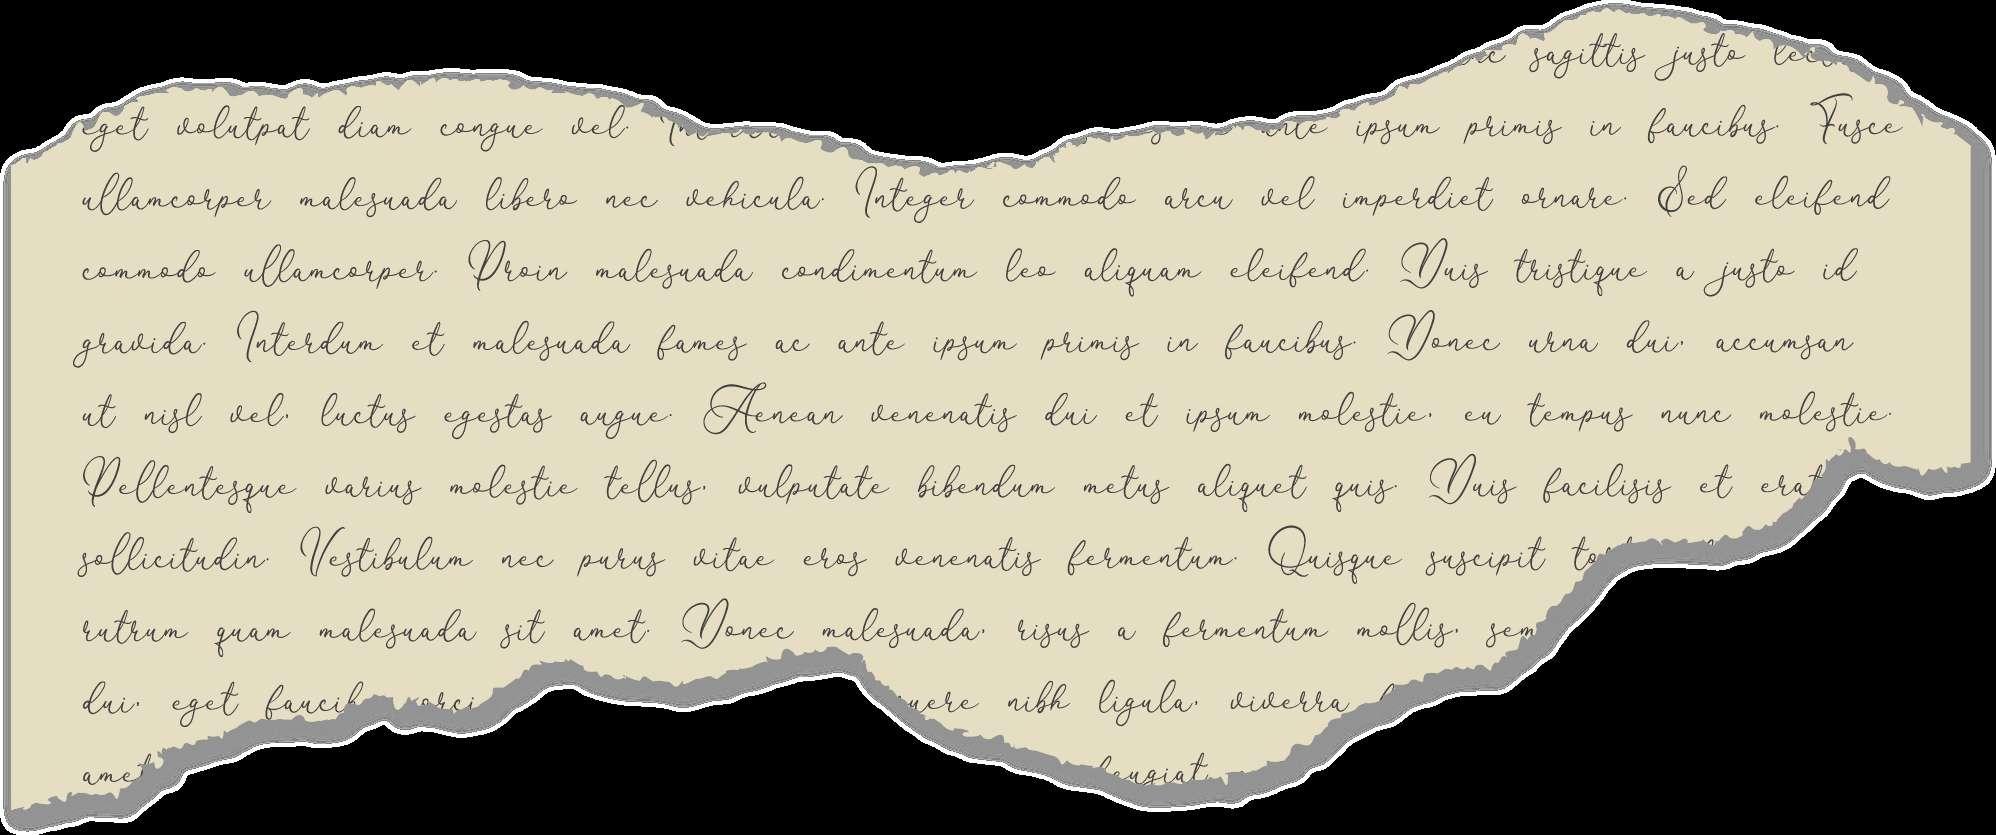 sagittis justo
eget volutpat diam congue vel. ipsum primis in faucibus. Fusce
ullamcorper malesuada libero nec vehicula. Integer commodo arcu vel imperdiet ornare. Sed eleifend
commodo ullamcorper. Proin malesuada condimentum leo aliquam eleifend. Duis tristique a justo id
gravida. Interdum et malesuada fames ac ante ipsum primis in faucibus. Donec urna dui, accumsan
ut nisl vel, luctus egestas augue. Aenean venenatis dui et ipsum molestie, eu tempus nunc molestie.
Pellentesque varius molestie tellus, vulputate bibendum metus aliquet quis. Duis facilisis et erat
sollicitudin. Vestibulum nec purus vitae eros venenatis fermentum. Quisque suscipit
rutrum quam malesuada sit amet. Donec malesuada, risus a fermentum mollis, sem
dui, eget orci nibh ligula, viverra
feugiat